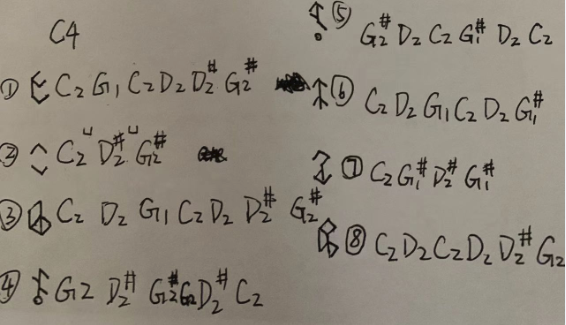 C4
① C₂ G₁ C₂ D₂ D₂# G₂#
② C₂ D₂# G₂#
③ C₂ D₂ G₁ C₂ D₂ D₂# G₂#
④ G2 D₂# G₂# G₂ D₂# C₂
⑤ G₂# D₂ C₂ G₁# D₂ C₂
⑥ C₂ D₂ G₁ C₂ D₂ G₁#
⑦ C₂ G₁# D₂# G₁#
⑧ C₂ D₂ C₂ D₂ D₂# G₂